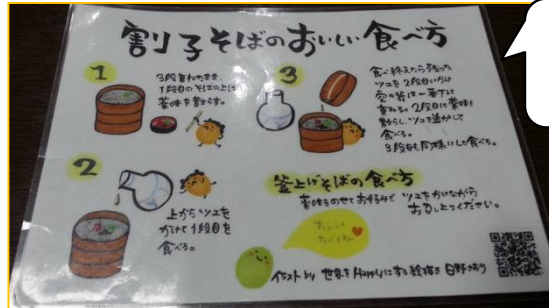 割子そばのおいしい食べ方
1
3段重ねたまま、
1段目のそばの上に
薬味を散らす。
2
上からツユを
かけて1段目を
食べる。
3
食べ終えたら残った
ツユを2段目にかけ
空の器は一番下に
重ねる。2段目に薬味を
散らし、ツユを追加して
食べる。
3段目も同様にして食べる。
釜上げそばの食べ方
薬味をのせてお好みで ツユをかけながら
お召し上がりください。
おいしく
たべてね
イラスト by 世界をHappyにする絵描き 日野